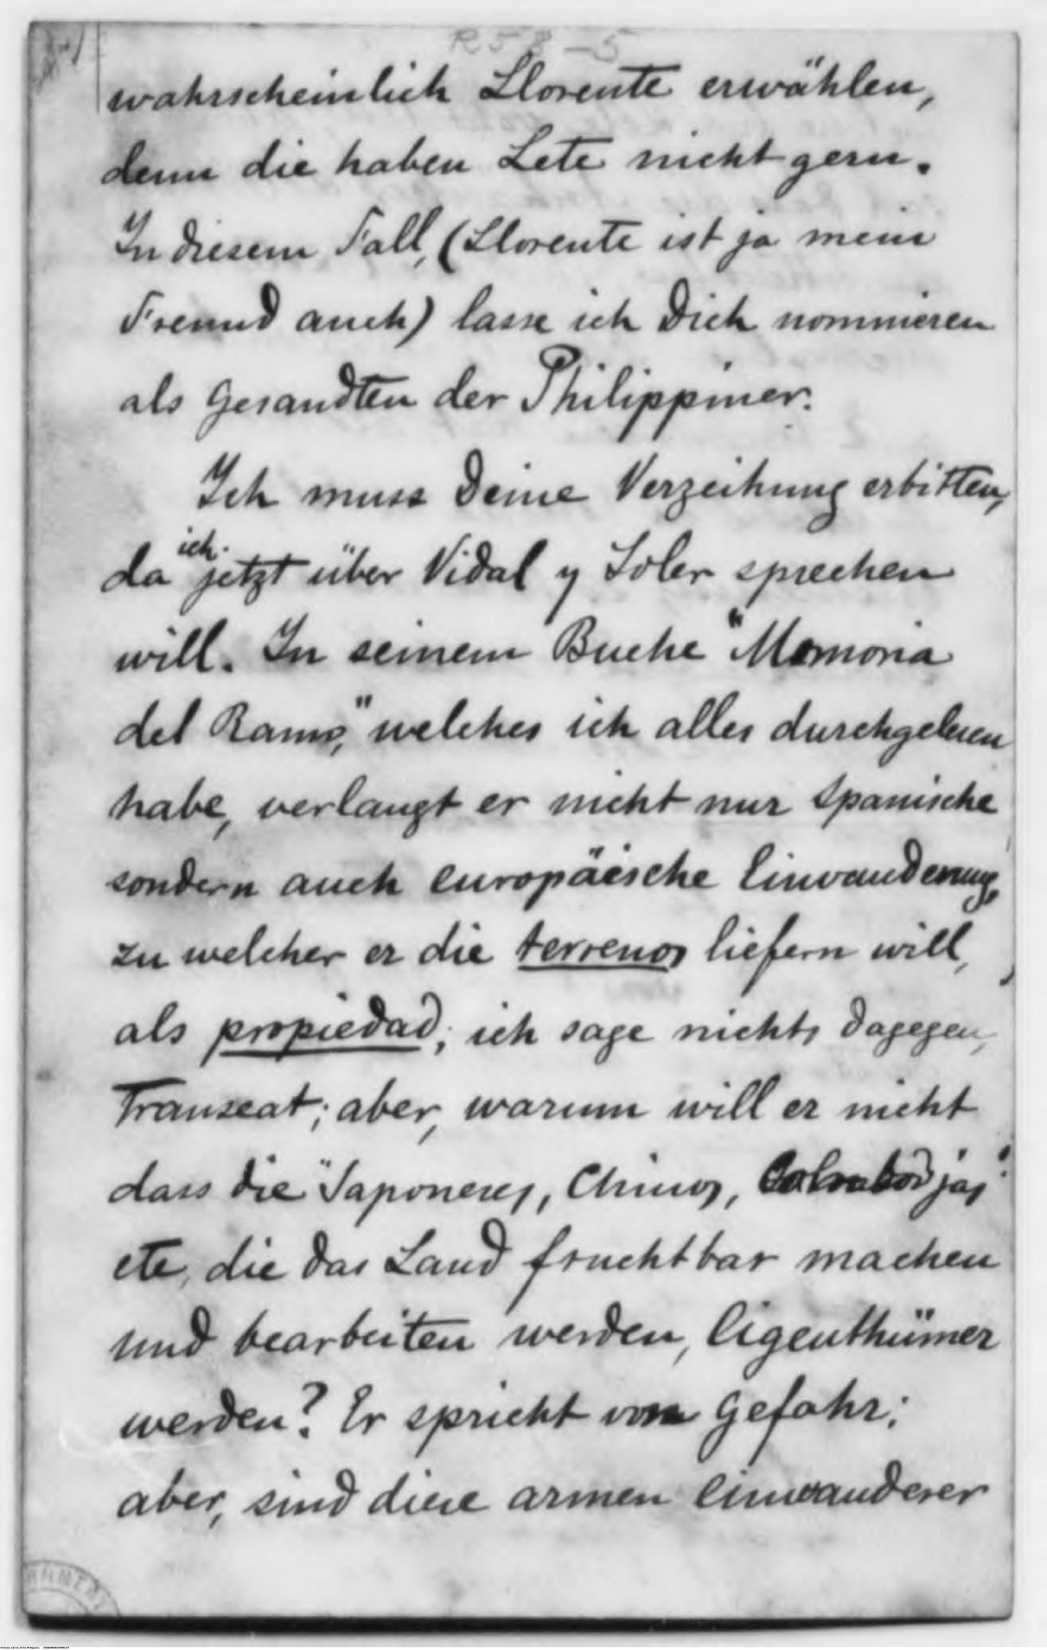 R58-5
wahrscheinlich Llorente erwählen,
denn die haben Lete nicht gern.
In diesem Fall, (Llorente ist ja mein
Freund auch) lasse ich Dich nommieren
als Gesandten der Philippiner.
Ich muss Deine Verzeihung erbitten,
da ich jetzt über Vidal y Soler sprechen
will. In seinem Buche "Memoria
del Ramo," welches ich alles durchgelesen
habe, verlangt er nicht nur Spanische
sondern auch europäische Einwanderung,
zu welcher er die terrenos liefern will,
als propiedad; ich sage nichts dagegen,
Transeat; aber, warum will er nicht
dass die "Japoneses, Chinos,
etc, die das Land fruchtbar machen
und bearbeiten werden, Eigenthümer
werden? Er spricht von Gefahr:
aber, sind diese armen Einwanderer